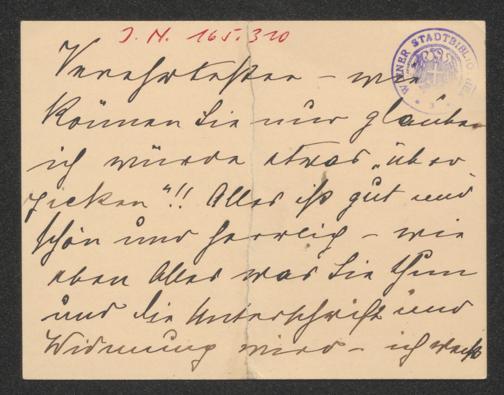 I. N. 165.310
WIENER STADTBIBLIOTHEK
Verehrtester – wie
können Sie nur glauben
ich würde etwas „über
zicken“!! Alles ist gut und
schön und herrlich – wie
eben Alles was Sie thun
und die Unterschrift und
Widmung wird – ich